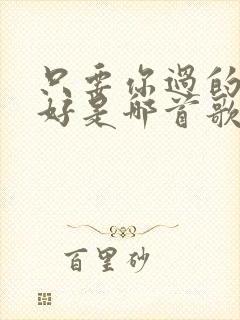 只要你過的
好是哪首歌
百里砂